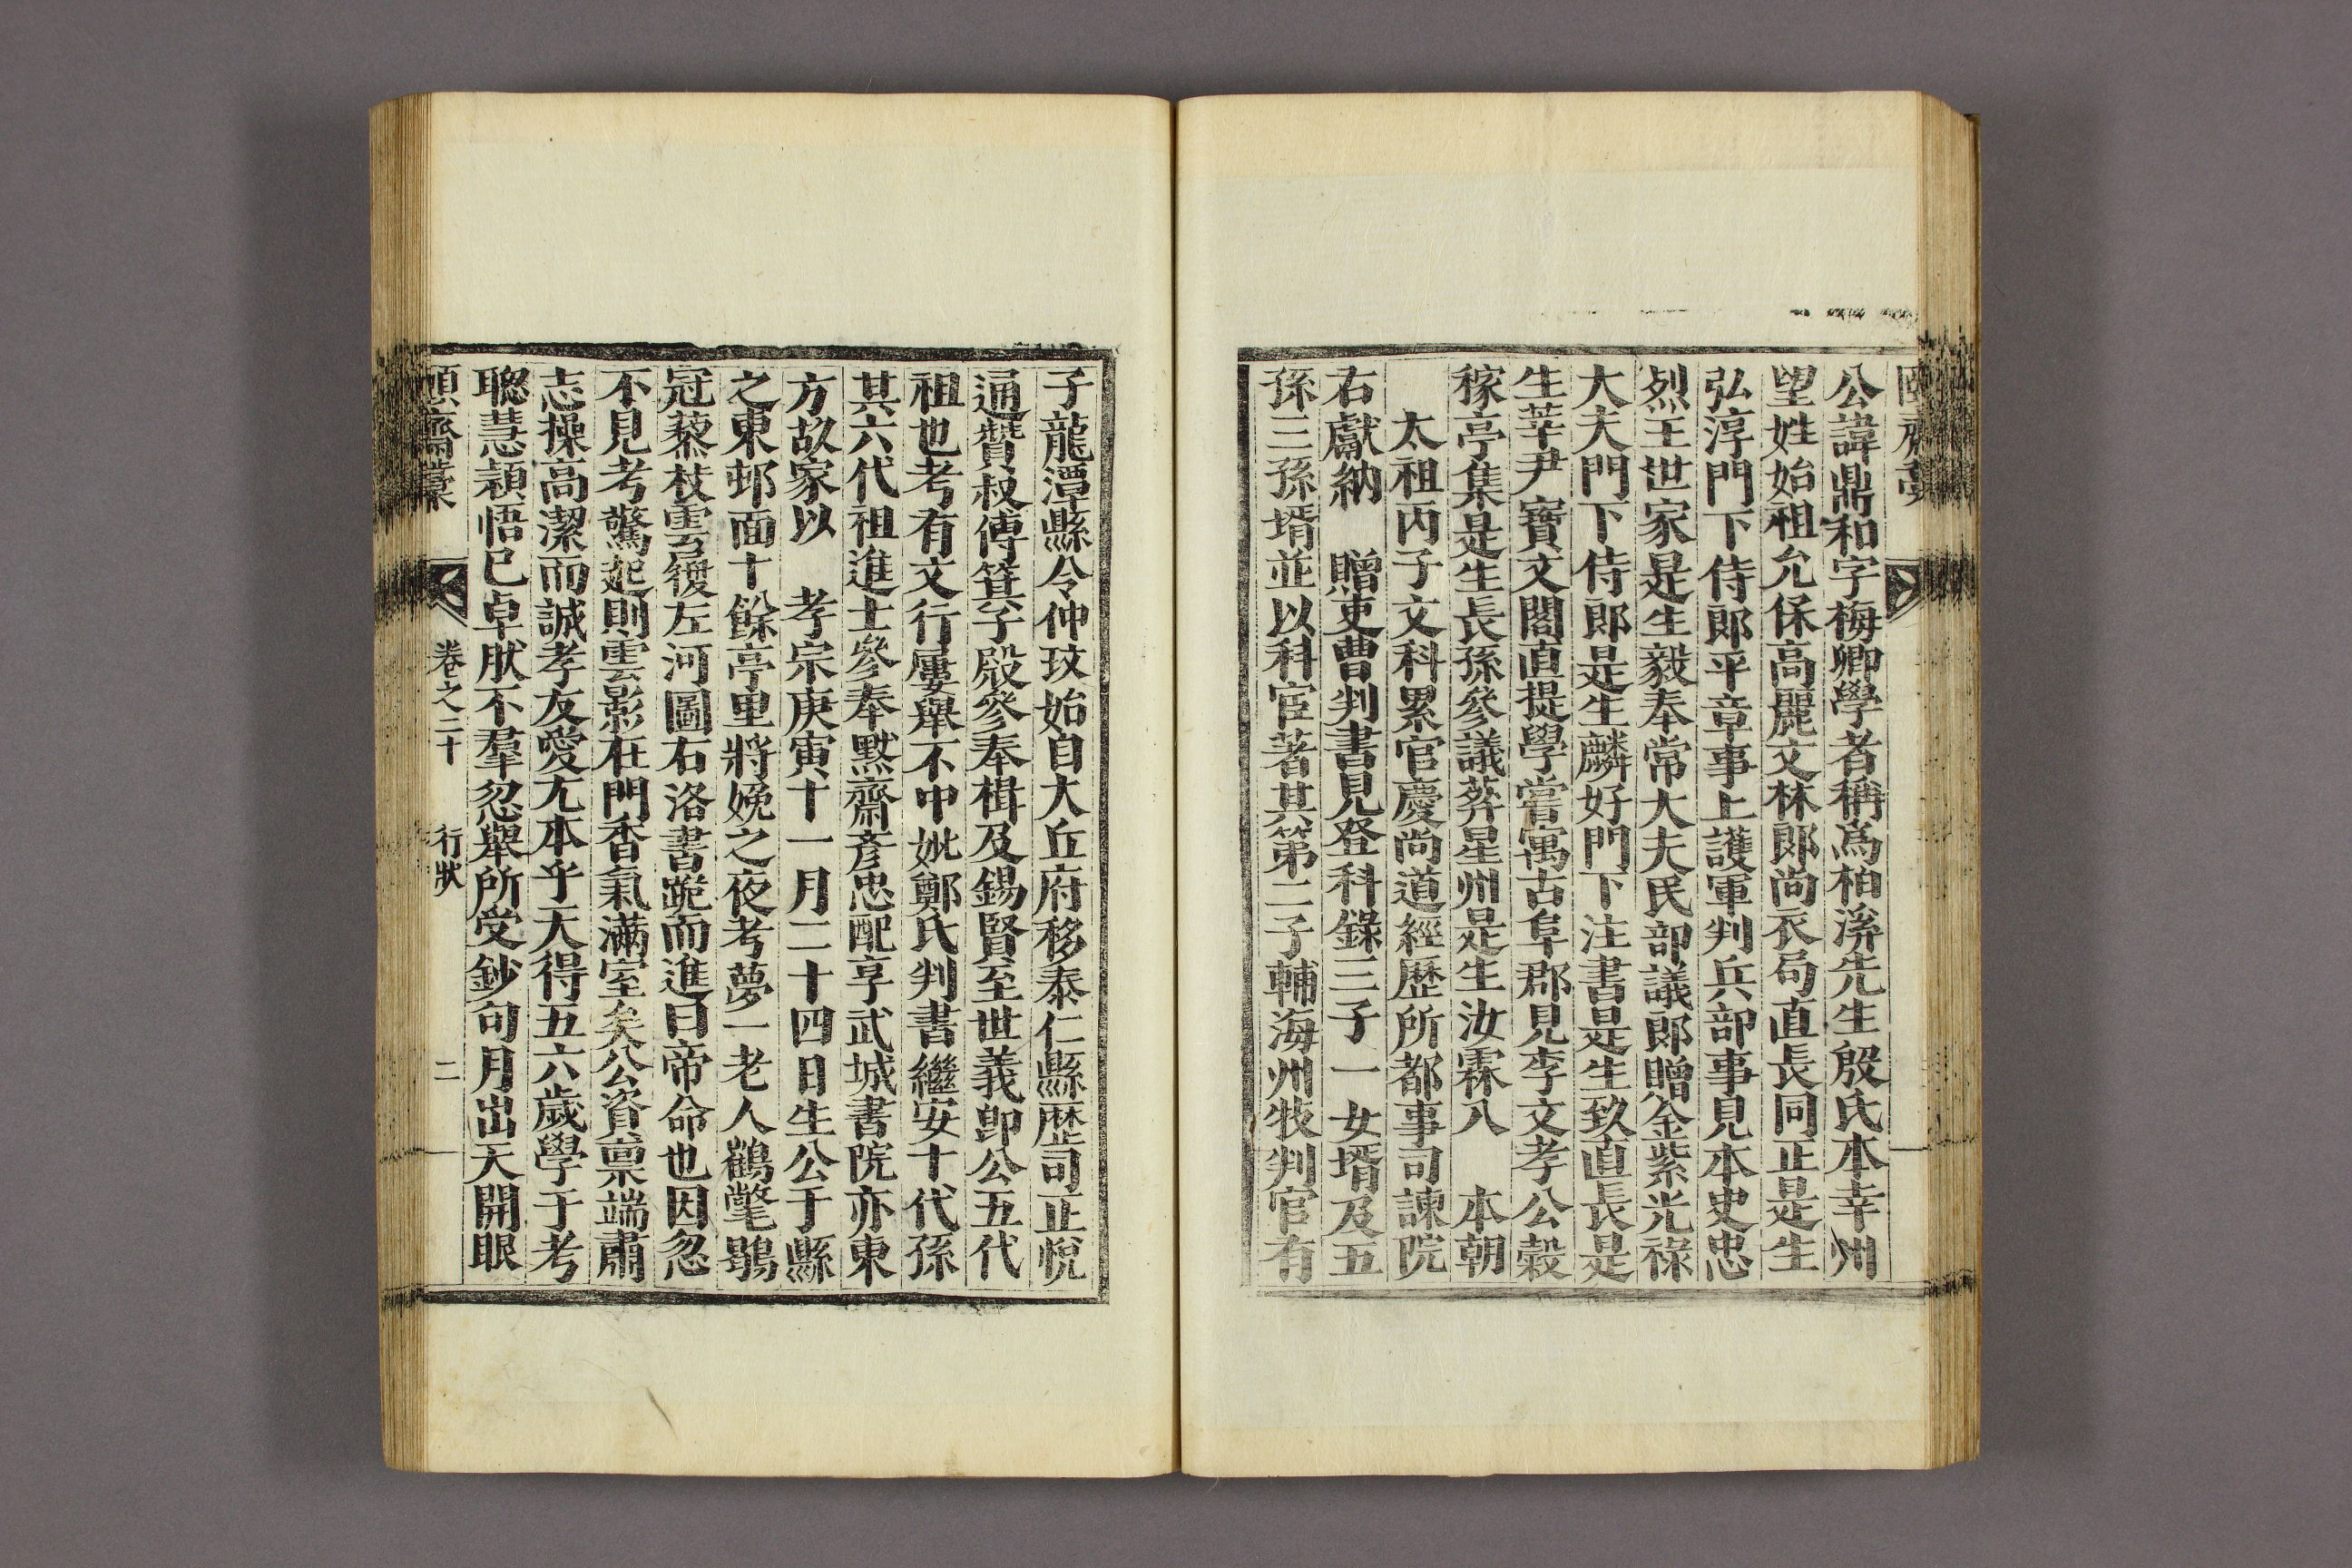 公諱鼎和字梅卿學者稱爲栢溪先生殷氏本幸州
望姓始祖允保高麗文林郎尙衣局直長同正是生
弘淳門下侍郎平章事上護軍判兵部事見本史忠
烈王世家是生毅奉常大夫民部議郎贈金紫光祿
大夫門下侍郎是生麟好門下注書是生玖直長是
生莘尹寶文閣直提學嘗寓古阜郡見李文孝公穀
稼亭集是生長孫參議葬星州是生汝霖入 本朝
太祖丙子文科累官慶尙道經歷所都事司諫院
右獻納 贈吏曹判書見登科錄三子一女壻及五
孫三孫壻並以科宦著其第二子輔海州牧判官有
子龍潭縣令仲玟始自大丘府移泰仁縣歷司正悅
通贊叔傅箕子殿參奉楫及錫賢至世義卽公五代
祖也考有文行屢擧不中妣鄭氏判書繼安十代孫
其六代祖進士參奉默齋彦忠配享武城書院亦東
方故家以 孝宗庚寅十一月二十四日生公于縣
之東邨面十餘亭里將娩之夜考夢一老人鶴氅鶡
冠藜杖雲履左河圖右洛書跪而進曰帝命也因忽
不見考驚起則雲影在門香氣滿室矣公資稟端肅
志操高潔而誠孝友愛尤本乎天得五六歲學于考
聰慧穎悟已卓肰不羣忽擧所受鈔句月出天開眼
頤齋藁 卷之二十 行狀 二